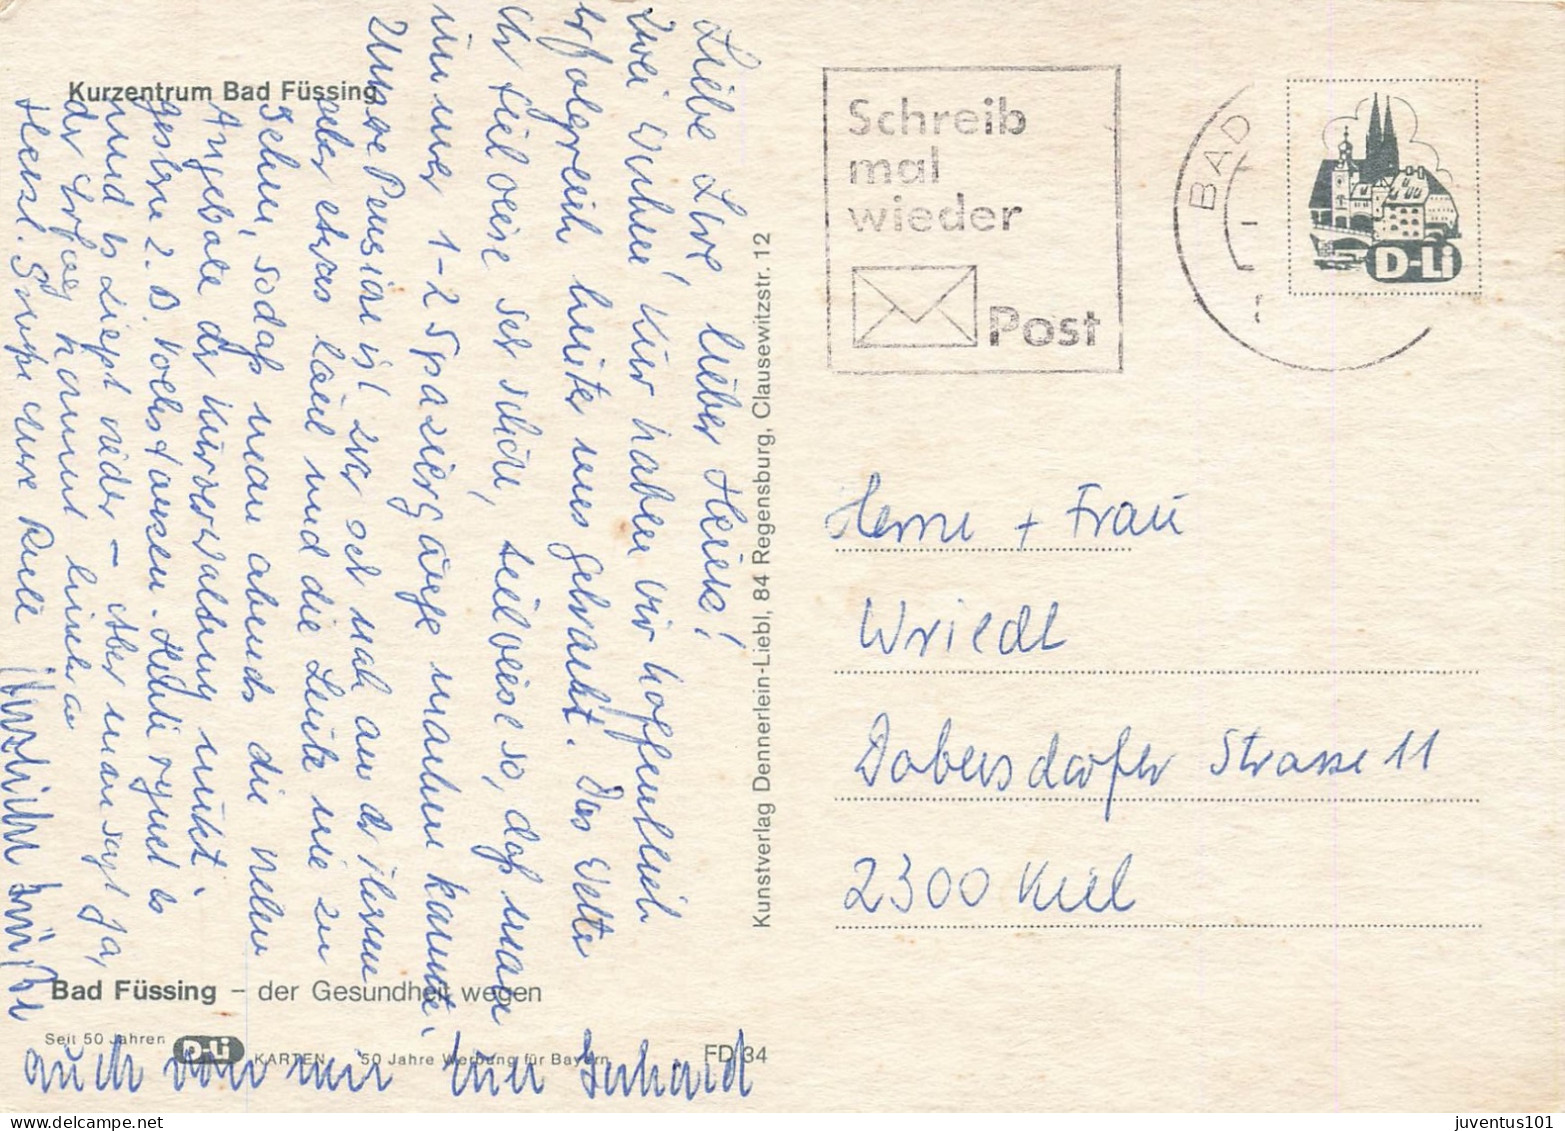 Kurzentrum Bad Füssing
Liebe Lore, lieber Heinz!
Zwei Wochen Kur haben wir hoffentlich
erfolgreich hinter uns gebracht. Das Wetter
ist teilweise sehr schön, teilweise so, daß man
immer 1-2 Spaziergänge machen konnte.
Unsere Pension ist zwar sehr nah an der Thermen
aber etwas laut und die Leute nie zu
sehen, sodaß man abends die vielen
Angebote der Kurverwaltung nutzt.
gestern z.B. Volkstanzen. Heute regnet es
und es liegt nieder - Aber man sagt ja,
der Erfolg kommt hinterher
Herzl. Grüße eure Ruth
Herzliche Grüße
auch von mir Euer Gerhard
Bad Füssing – der Gesundheit wegen
Seit 50 Jahren D-Li KARTEN 50 Jahre Werbung für Bayern FD 34
Kunstverlag Dennerlein-Liebl, 84 Regensburg, Clausewitzstr. 12
Schreib
mal
wieder
Post
BAD
D-Li
Herrn + Frau
Wriedt
Dobersdorfer Strasse 11
2300 Kiel
juventus101